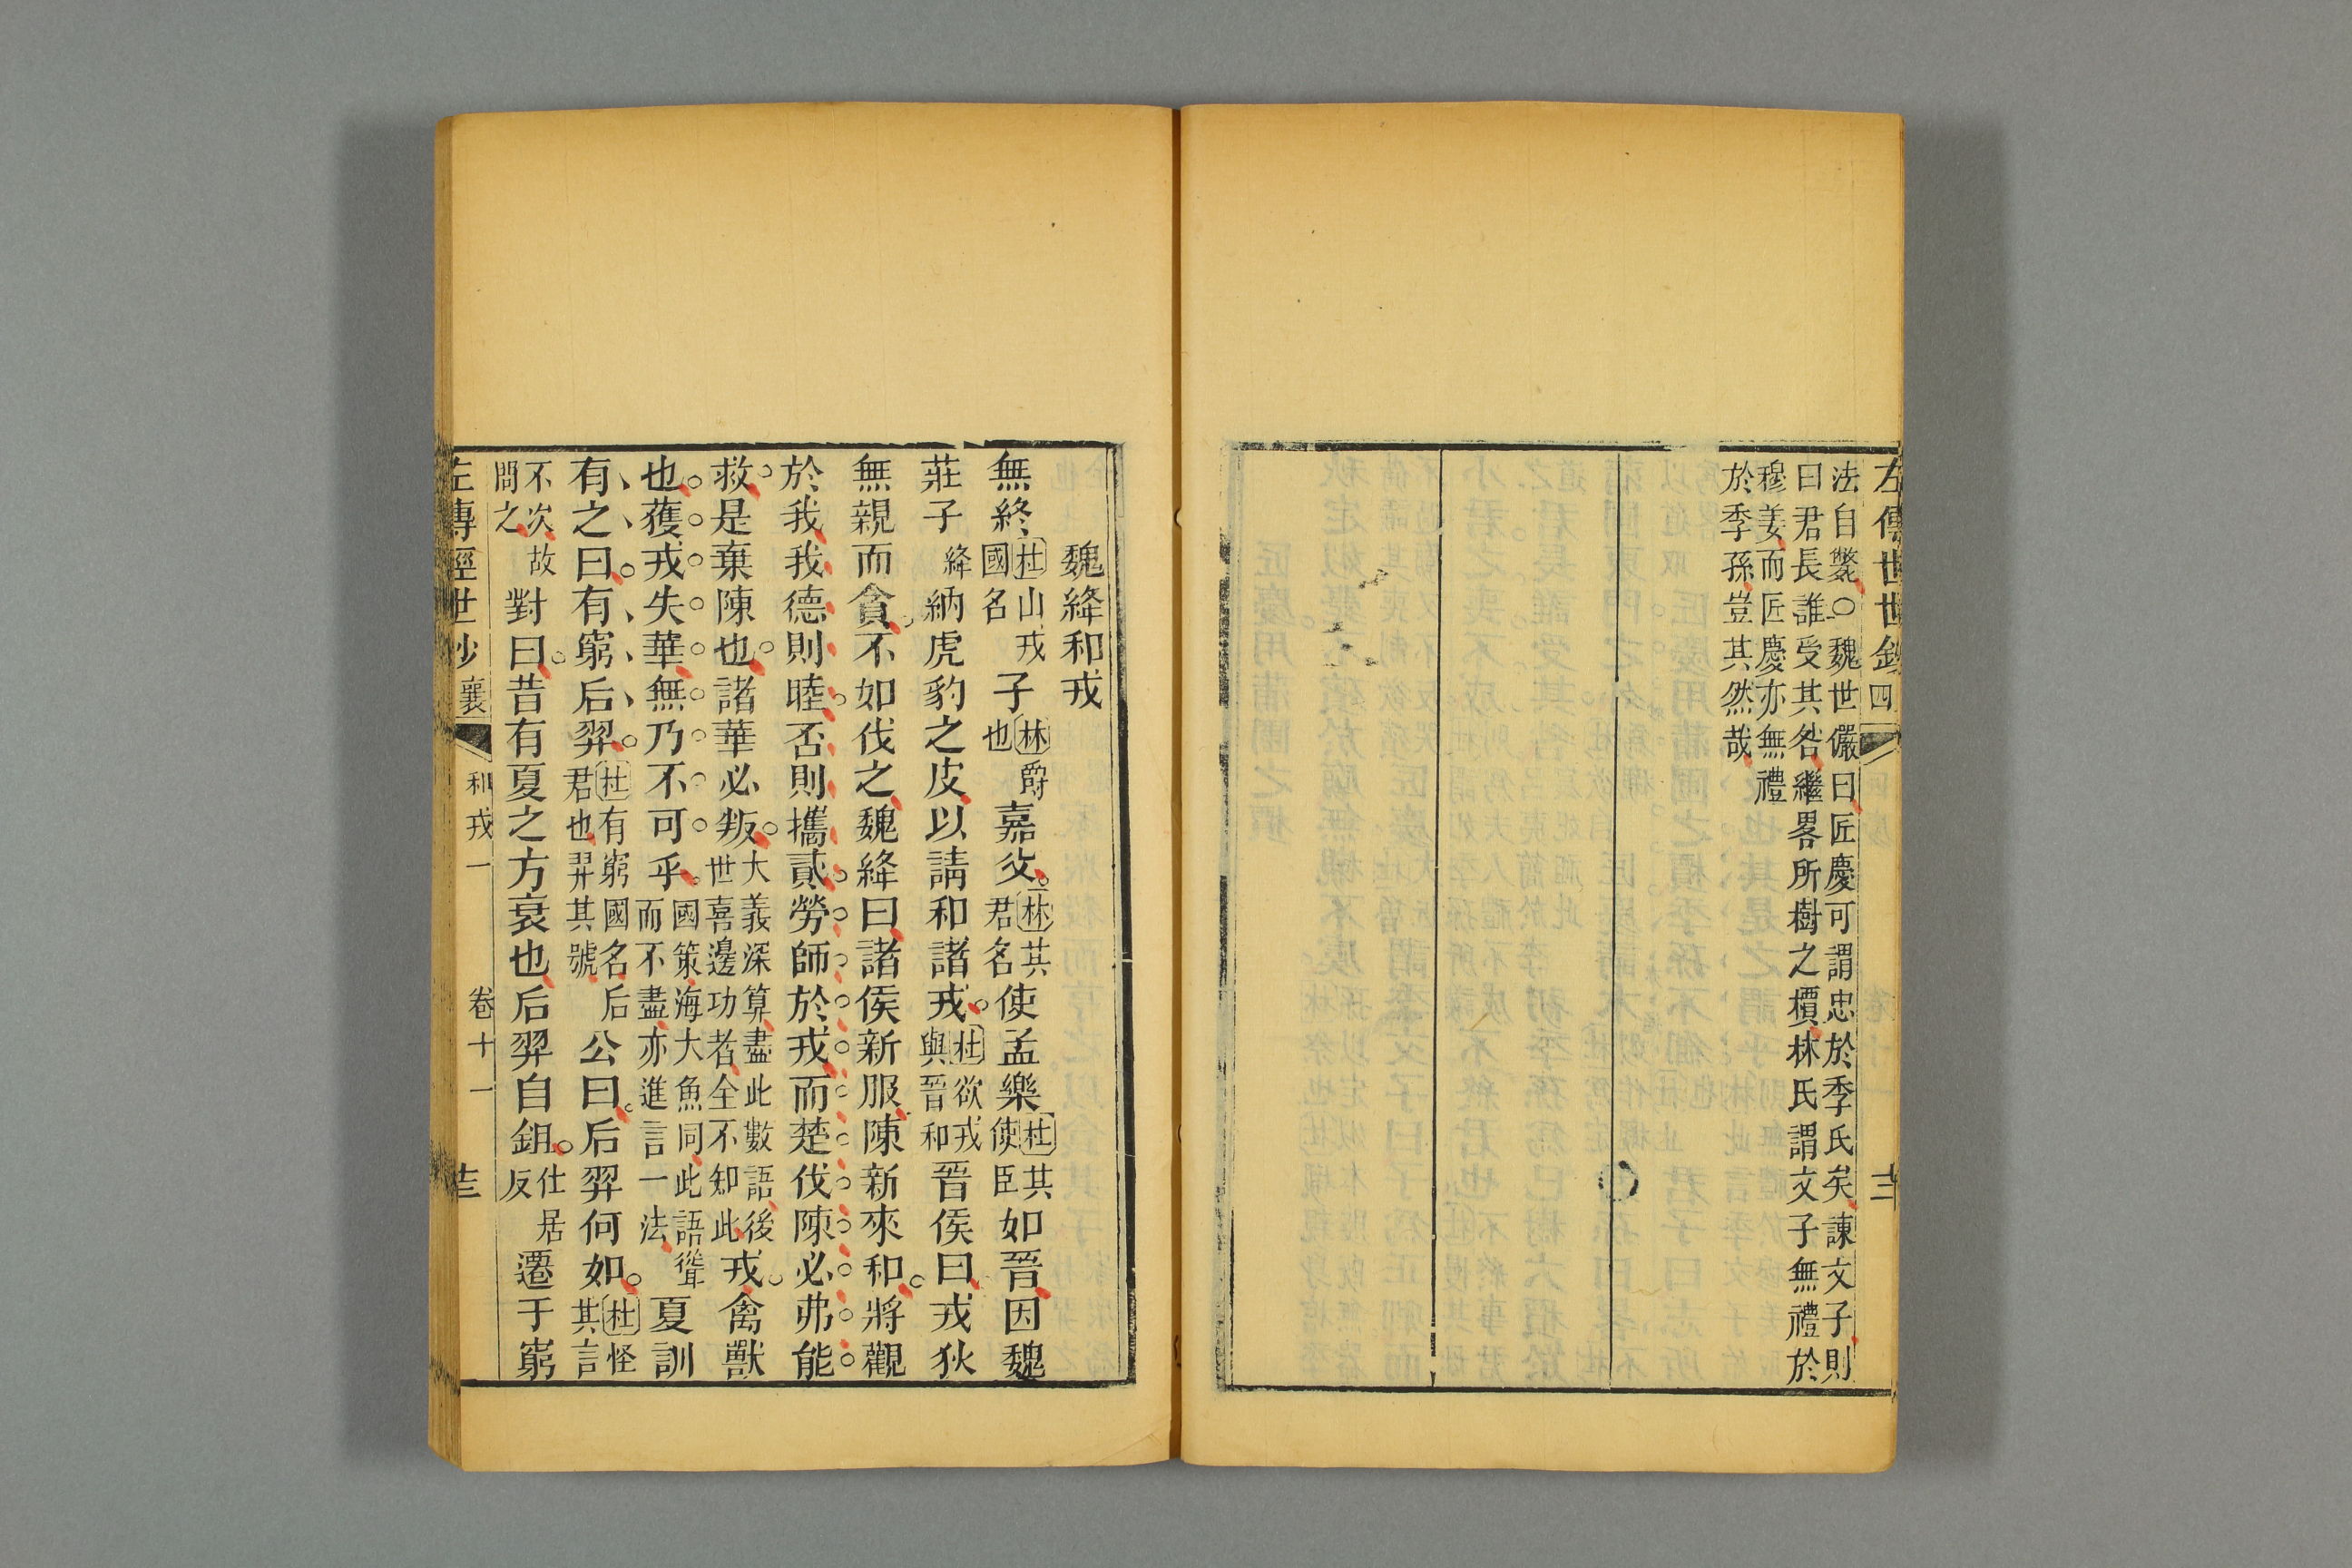 左傳世世鈔 四 十二
法自斃〇魏世儼曰匠慶可謂忠於季氏矣諫文子則
曰君長誰受其咎繼畧所樹之檟林氏謂文子無禮於
穆姜而匠慶亦無禮
於季孫豈其然哉
魏絳和戎
無終杜山戎國名子林爵也嘉父林其君名使孟樂杜其使臣如晉因魏
莊子絳納虎豹之皮以請和諸戎杜欲戎與晉和晉侯曰戎狄
無親而貪不如伐之魏絳曰諸侯新服陳新來和將觀
於我我德則睦否則攜貳勞師於戎而楚伐陳必弗能
救是棄陳也諸華必叛大義深算盡此數語後世喜邊功者全不知此戎禽獸
也獲戎失華無乃不可乎國策海大魚同此語聳而不盡亦進言一法夏訓
有之曰有窮后羿杜有窮國名后君也羿其號公曰后羿何如杜怪其言
不次故問之對曰昔有夏之方衰也后羿自鉏仕居反遷于窮
左傳經世鈔 襄 和戎一 卷十一 十三